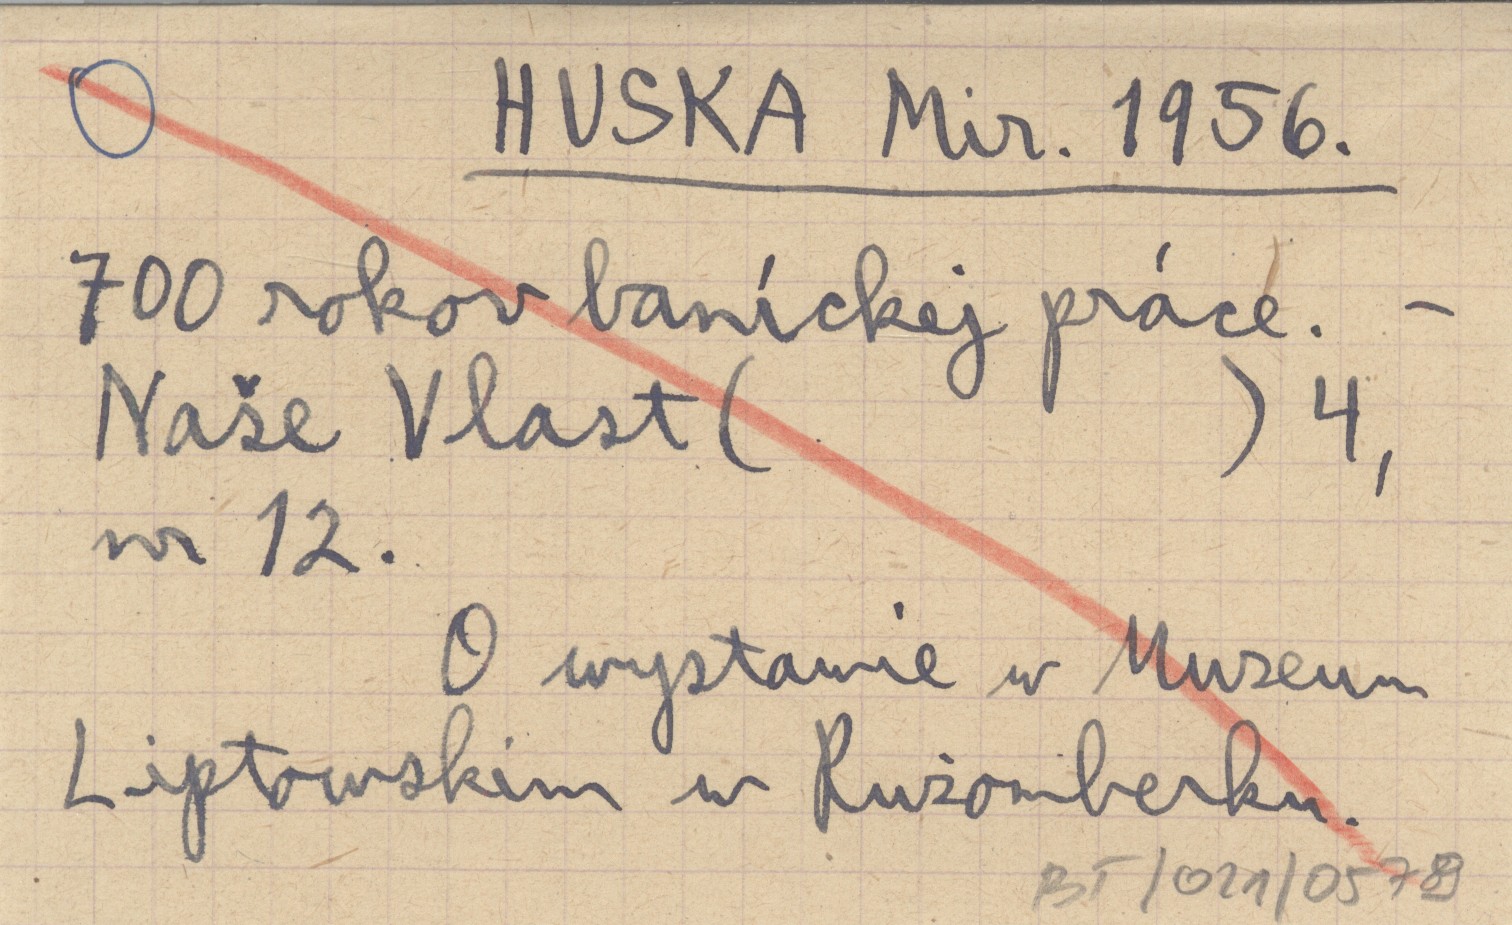 HUSKA Mir. 1956.
700 rokov baníckej práce. -
Naše Vlast ( ) 4,
nr 12.
O wystawie w Muzeum
Liptowskim w Rużomberku.
BT/021/0578